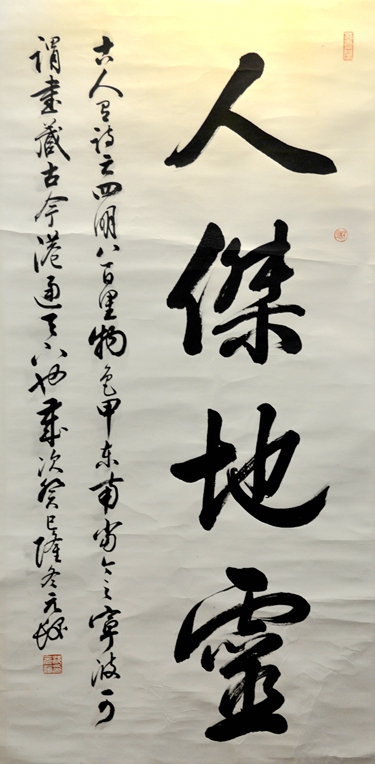 人傑地靈
古人有詩云四明八百里物色甲东南当今之寧波可
谓書藏古今港通天下也歲次癸巳隆冬元